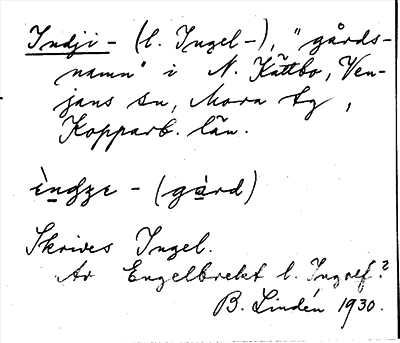 Indji- (l. Ingel-), "gårds-
namn" i N. Kättbo, Ven-
jans sn, Mora tg,
Kopparb. län.
èndze - (gàrd)
Skrives Ingel.
Av Engelbrekt l. Ingolf?
B. Lindén 1930.